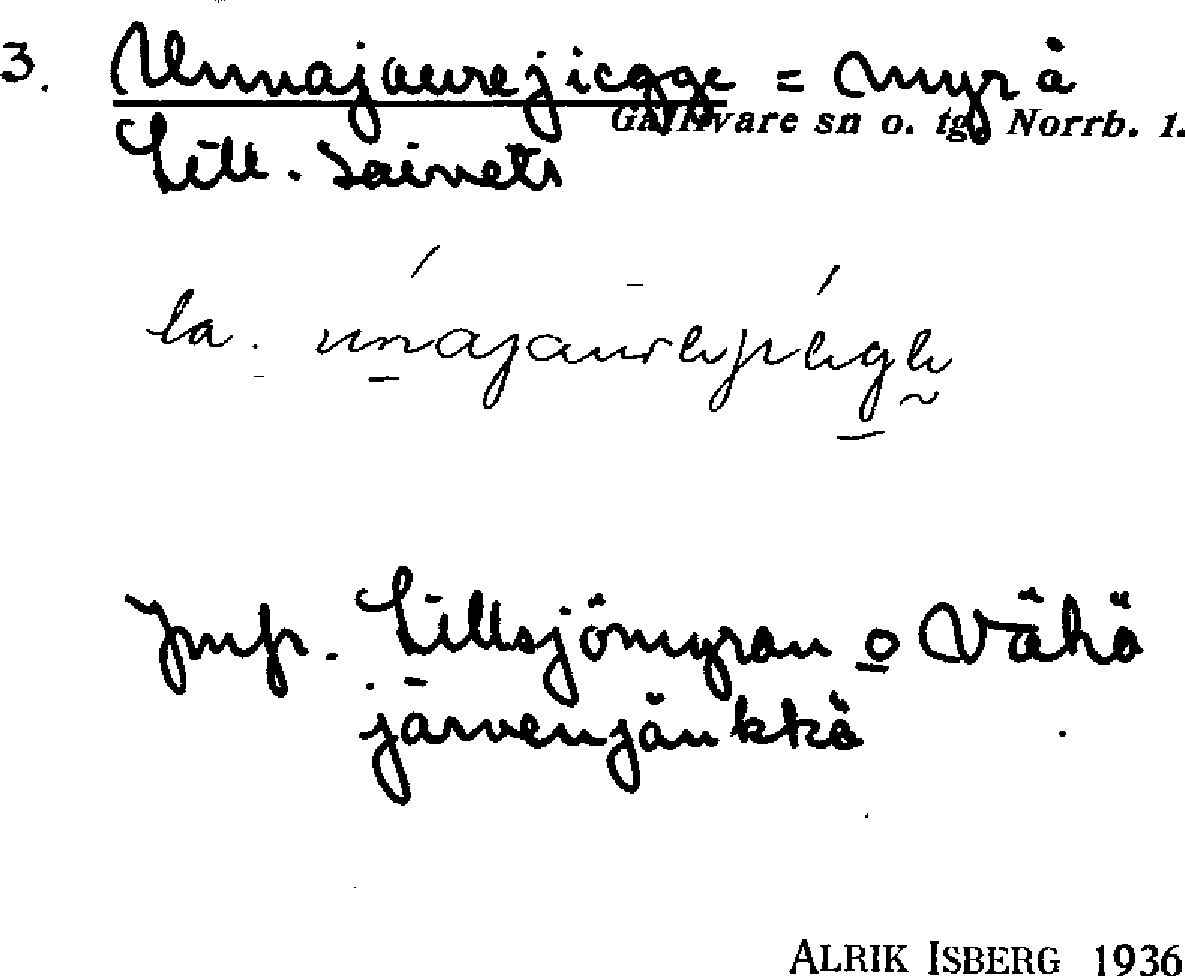 3. Unnajaurejiegge = myr å
Gällivare sn o. tg. Norrb. l.
Lill. Saivets
la.
Jmfr. Lillsjömyran o Vähä
järvenjänkkä
ALRIK ISBERG 1936